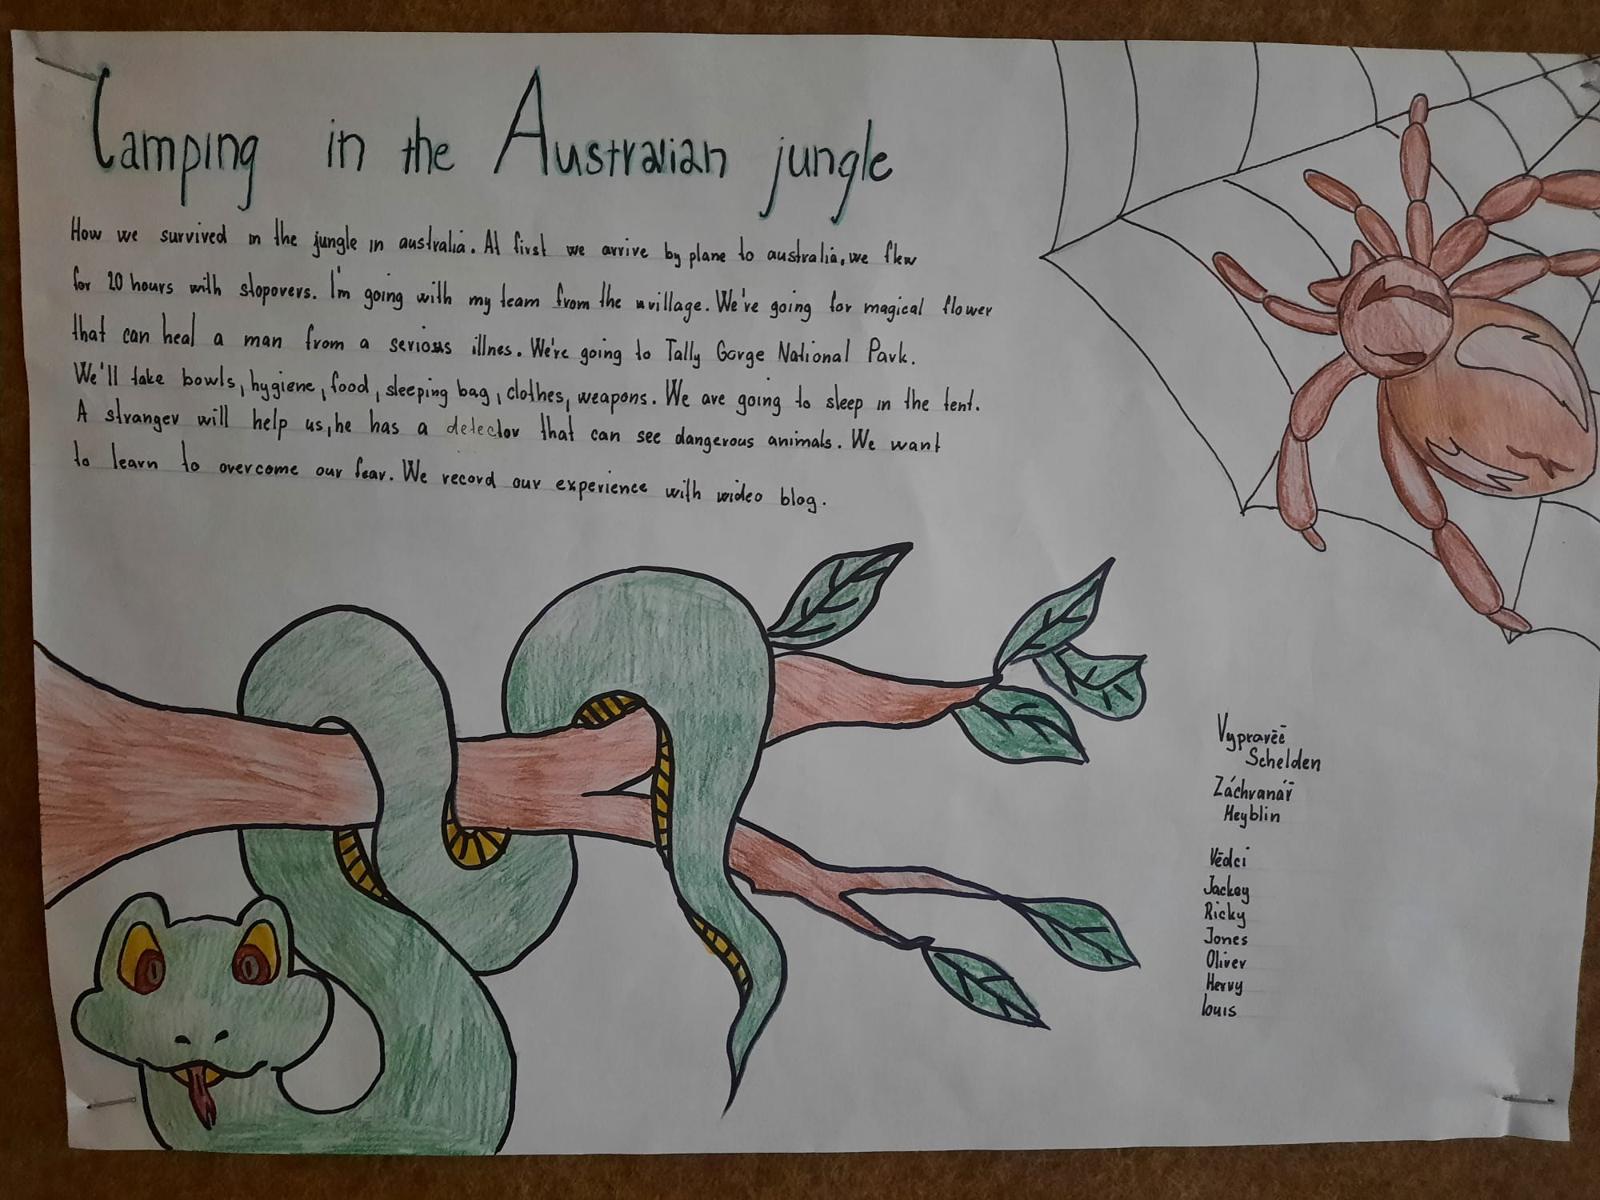 Camping in the Australian jungle
How we survived in the jungle in australia. At first we arrive by plane to australia, we flew
for 20 hours with stopovers. I'm going with my team from the village. We're going for magical flower
that can heal a man from a serious illnes. We're going to Tally Gorge National Park.
We'll take bowls, hygiene, food, sleeping bag, clothes, weapons. We are going to sleep in the tent.
A stranger will help us, he has a detector that can see dangerous animals. We want
to learn to overcome our fear. We record our experience with wideo blog.
Vypravěč
Schelden
Záchranář
Heyblin
Vědci
Jackey
Ricky
Jones
Oliver
Hervy
louis